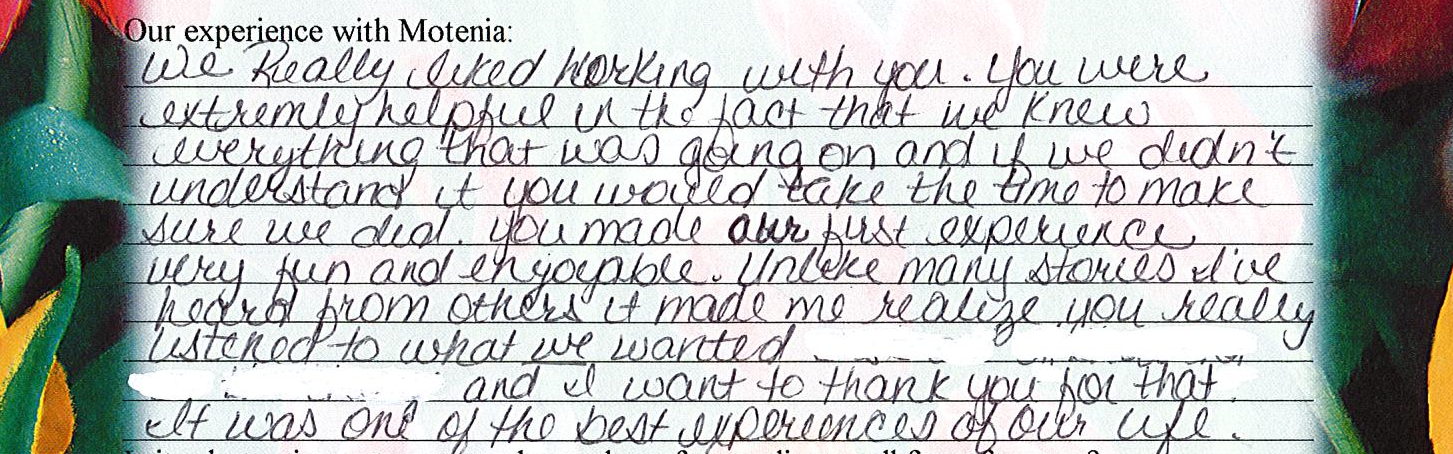 Our experience with Motenia:
We Really liked working with you. You were
extremly helpful in the fact that we knew
everything that was going on and if we didn't
understand it you would take the time to make
sure we did. You made our first experience
very fun and enjoyable. Unlike many stories I've
heard from others it made me realize you really
listened to what we wanted
and I want to thank you for that.
It was one of the best experiences of our life.